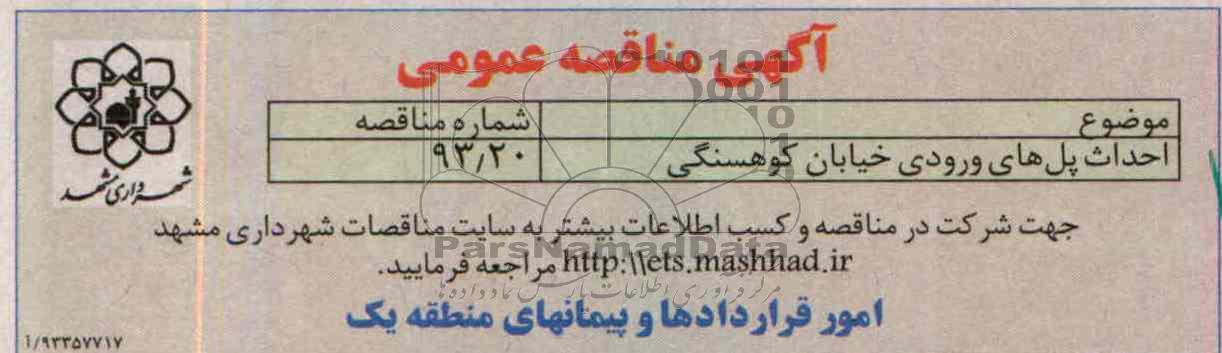 آگهی مناقصه عمومی
موضوع شماره مناقصه
احداث پل‌های ورودی خیابان کوهسنگی ۹۳/۲۰
شهرداری مشهد
جهت شرکت در مناقصه و کسب اطلاعات بیشتر به سایت مناقصات شهرداری مشهد
http:\\ets.mashhad.ir مراجعه فرمایید.
امور قراردادها و پیمانهای منطقه یک
۹۳۳۵۷۷۱۷/آ
ParsNamadData
مرکز فرآوری اطلاعات پارس نماد داده ها